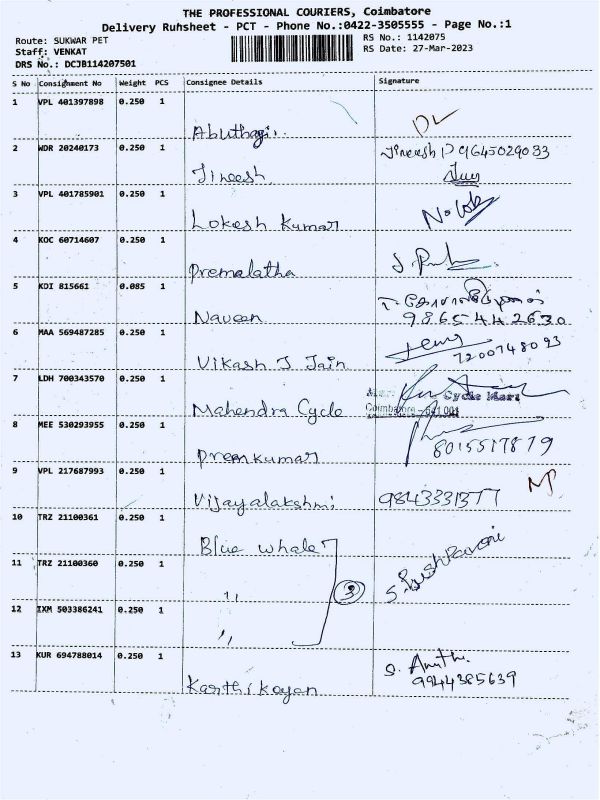 THE PROFESSIONAL COURIERS, Coimbatore
Delivery Runsheet - PCT - Phone No.:0422-3505555 - Page No.:1
Route: SUKWAR PET
RS No.: 1142075
Staff: VENKAT
RS Date: 27-Mar-2023
DRS No.: DCJB114207501
S No Consignment No Weight PCS Consignee Details Signature
1 VPL 401397898 0.250 1
Abuthagir
2 WDR 20240173 0.250 1 Jineesh P 9645029033
Jineesh
3 VPL 401785901 0.250 1
Lokesh Kumar
4 KOC 60714607 0.250 1
Premalatha
5 KDI 815661 0.085 1
Naveen 9865442630
6 MAA 569487285 0.250 1
Vikash J Jain 7200748093
7 LDH 700343570 0.250 1 Cycle Mart
Mahendra Cycle Coimbatore - 641 001
8 MEE 530293955 0.250 1
Premkumar 8015517879
9 VPL 217687993 0.250 1
Vijayalakshmi 9843331377
10 TRZ 21100361 0.250 1
Blue whale
11 TRZ 21100360 0.250 1
" 3
12 IXM 503386241 0.250 1
"
13 KUR 694788014 0.250 1
Karthikayan 9944385639